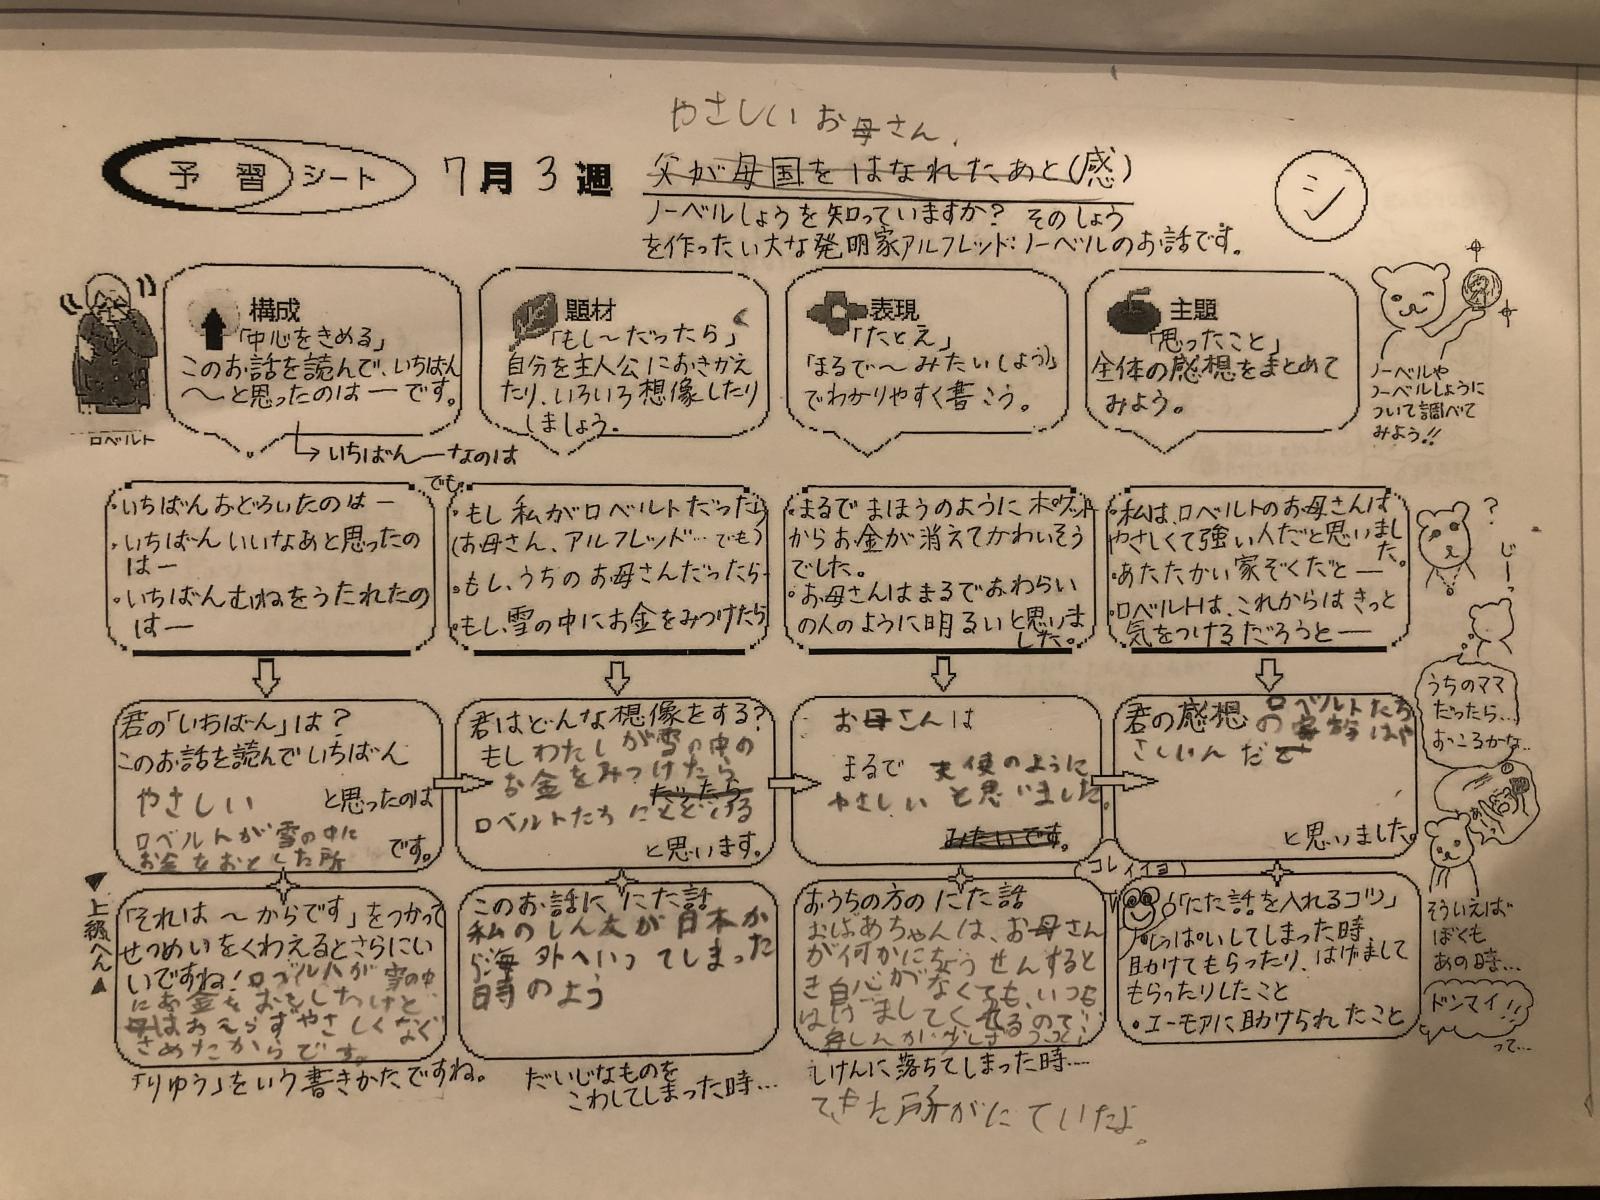 やさしいお母さん
予習シート 7月3週 父が母国をはなれたあと(感)
シ
ノーベルしょうを知っていますか? そのしょう
を作ったい大な発明家アルフレッド:ノーベルのお話です。
ロベルト
構成
「中心をきめる」
このお話を読んで、いちばん
〜と思ったのは―です。
↳いちばん―なのは
題材
「もし〜だったら」
自分を主人公におきかえ
たり、いろいろ想像したり
しましょう。
表現
「たとえ」
「まるで〜みたい(しよう)」
でわかりやすく書こう。
主題
「思ったこと」
全体の感想をまとめて
みよう。
ノーベルや
ノーベルしょうに
ついて調べて
みよう!!
・いちばんおどろいたのは―
・いちばんいいなあと思ったの
は―
・いちばんむねをうたれたの
は―
でも。
・もし私がロベルトだったら
(お母さん、アルフレッド…でも)
・もし、うちのお母さんだったら
・もし、雪の中にお金をみつけたら
・まるでまほうのようにポケット
からお金が消えてかわいそう
でした。
・お母さんはまるでおわらい
の人のように明るいと思いま
した。
・私は、ロベルトのお母さんは
やさしくて強い人だと思いまし
た。
・あたたかい家ぞくだと―
・ロベルトは、これからはきっと
気をつけるだろうと―
?
じーっ
うちのママ
だったら…
おこるかな…
君の「いちばん」は?
このお話を読んでいちばん
やさしい と思ったのは
ロベルトが雪の中に
お金をおとした所 です。
君はどんな想像をする?
もしわたしが雪の中の
お金をみつけたら
だったら
ロベルトたちにとどける
と思います。
お母さんは
まるで 天使のように
やさしい と思いました。
みたいです。
君の感想 ロベルトたち
の家族はや
さしいんだと
と思いました。
▼上級へん▲
「それは〜からです」をつかって
せつめいをくわえるとさらにい
いですね! ロブルトが雪の中
にお金をおとしたけど
母はおこらずやさしくなぐ
さめたからです。
「りゆう」をいう書きかたですね。
このお話ににた話
私のしん友が日本か
ら海外へいってしまった
時のよう
だいじなものを
こわしてしまった時…
おうちの方のにた話
おばあちゃんは、お母さん
が何かにちょうせんすると
き自心がなくても、いつも
はげましてくれるので
しけんに落ちてしまった時……
てきた所がにていたよ。
コレイイヨ
「にた話を入れるコツ」
・しっぱいしてしまった時、
助けてもらったり、はげまして
もらったりしたこと
・ユーモアに助けられたこと
そういえば
ぼくも
あの時…
ドンマイ!!
って…